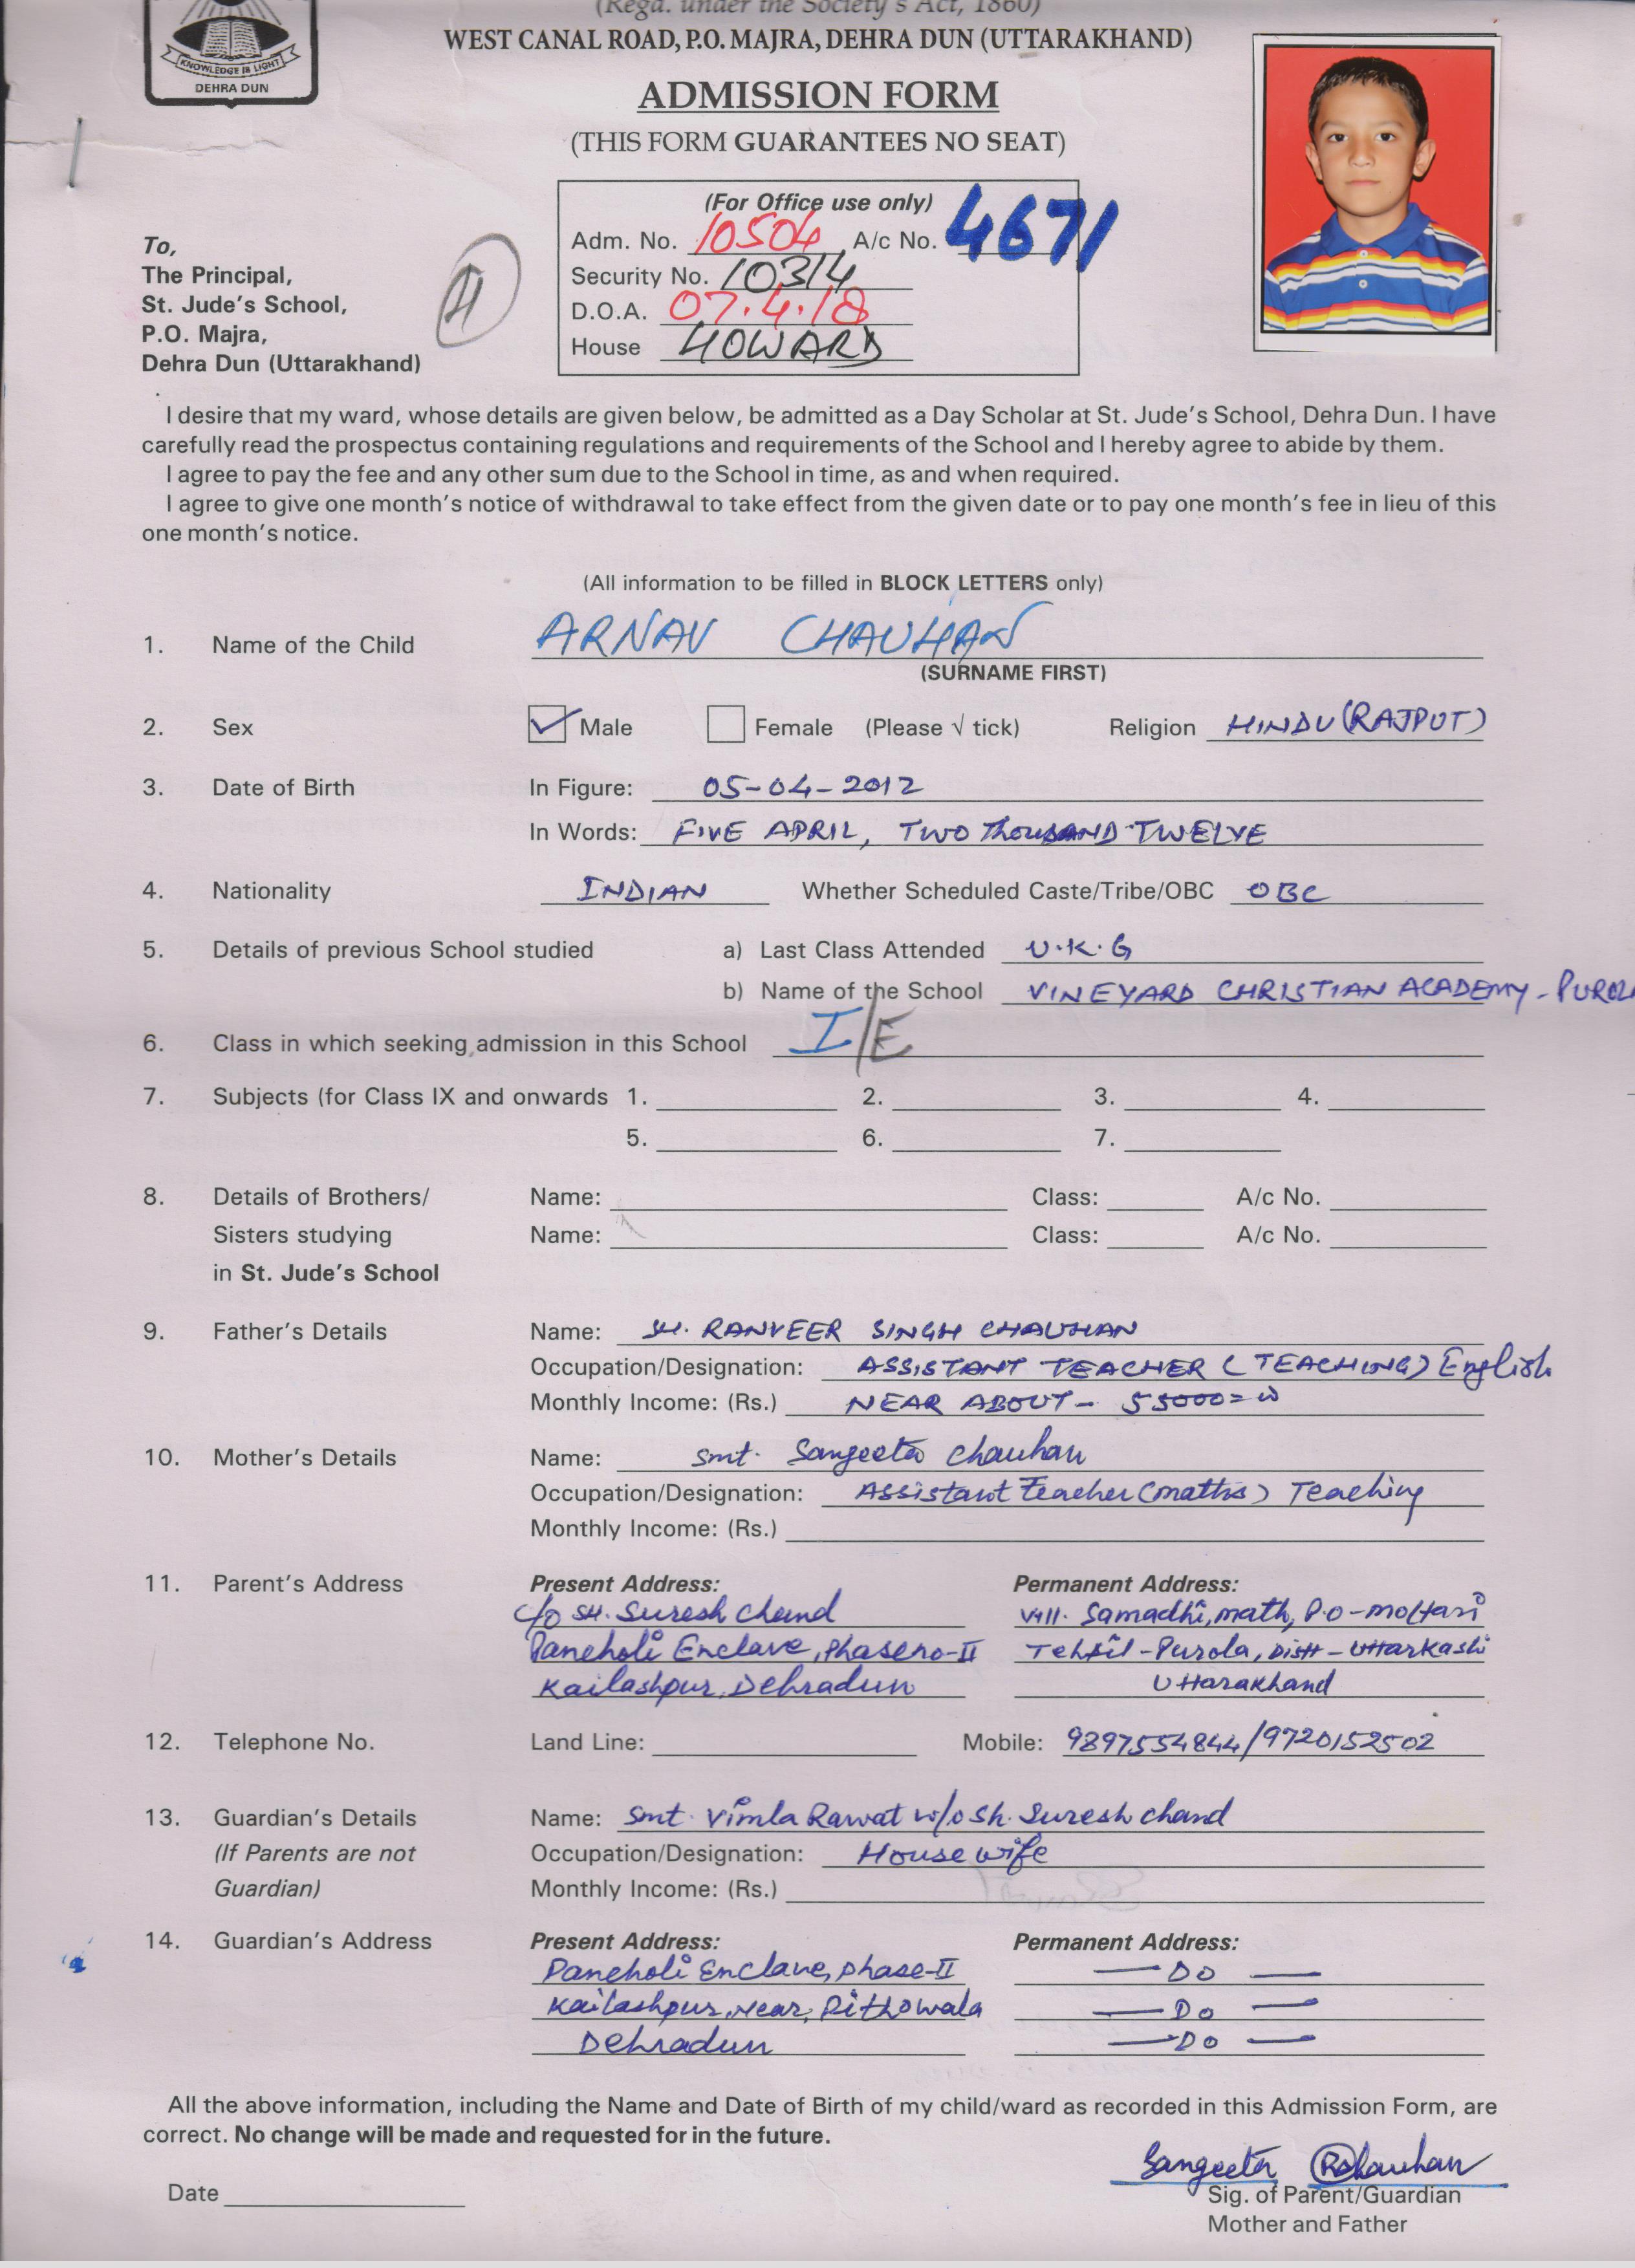 (Regd. under the Society's Act, 1860)
WEST CANAL ROAD, P.O. MAJRA, DEHRA DUN (UTTARAKHAND)
KNOWLEDGE IS LIGHT
DEHRA DUN
ADMISSION FORM
(THIS FORM GUARANTEES NO SEAT)
(For Office use only)
Adm. No. 10504 A/c No. 4671
Security No. 10314
D.O.A. 07.4.18
House HOWARD
To,
The Principal,
St. Jude's School,
P.O. Majra,
Dehra Dun (Uttarakhand)
I desire that my ward, whose details are given below, be admitted as a Day Scholar at St. Jude's School, Dehra Dun. I have
carefully read the prospectus containing regulations and requirements of the School and I hereby agree to abide by them.
I agree to pay the fee and any other sum due to the School in time, as and when required.
I agree to give one month's notice of withdrawal to take effect from the given date or to pay one month's fee in lieu of this
one month's notice.
(All information to be filled in BLOCK LETTERS only)
1. Name of the Child ARNAV CHAUHAN
(SURNAME FIRST)
2. Sex Male Female (Please √ tick) Religion HINDU (RAJPUT)
3. Date of Birth In Figure: 05-04-2012
In Words: FIVE APRIL, TWO ThouSAND TWELVE
4. Nationality INDIAN Whether Scheduled Caste/Tribe/OBC OBC
5. Details of previous School studied a) Last Class Attended U.K.G
b) Name of the School VINEYARD CHRISTIAN ACADEMY - PUROLA
6. Class in which seeking admission in this School I/E
7. Subjects (for Class IX and onwards 1. 2. 3. 4.
5. 6. 7.
8. Details of Brothers/ Name: Class: A/c No.
Sisters studying Name: Class: A/c No.
in St. Jude's School
9. Father's Details Name: SH. RANVEER SINGH CHAUHAN
Occupation/Designation: ASSISTANT TEACHER (TEACHING) English
Monthly Income: (Rs.) NEAR ABOUT - 55000=00
10. Mother's Details Name: Smt. Sangeeta Chauhan
Occupation/Designation: Assistant Teacher (maths) Teaching
Monthly Income: (Rs.)
11. Parent's Address Present Address: Permanent Address:
C/o SH. Suresh Chand Vill. Samadhi, math, P.O - moltari
Pancholi Enclave, Phaseno-II Tehsil - Purola, Distt - Uttarkashi
Kailashpur, Dehradun Uttarakhand
12. Telephone No. Land Line: Mobile: 9897554844/9720152502
13. Guardian's Details Name: Smt. Vimla Rawat w/o Sh. Suresh chand
(If Parents are not Occupation/Designation: House wife
Guardian) Monthly Income: (Rs.)
14. Guardian's Address Present Address: Permanent Address:
Pancholi Enclave, phase-II — DO —
Kailashpur, Near, Pithowala — DO —
Dehradun — DO —
All the above information, including the Name and Date of Birth of my child/ward as recorded in this Admission Form, are
correct. No change will be made and requested for in the future.
Sangeeta RSChauhan
Date Sig. of Parent/Guardian
Mother and Father